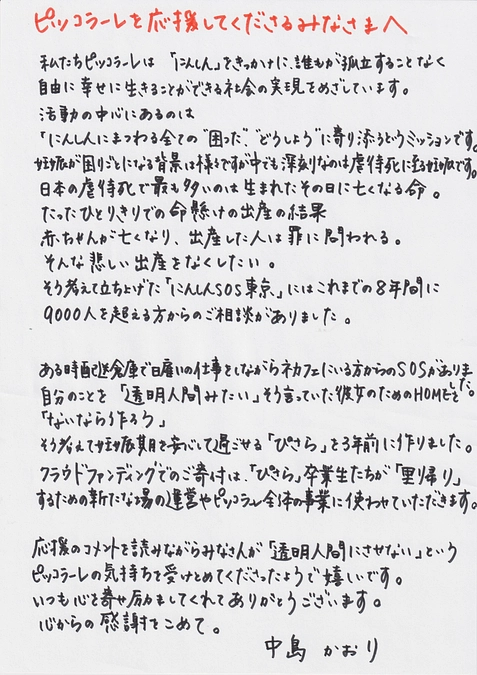 ピッコラーレを応援してくださるみなさまへ
私たちピッコラーレは「にんしん」をきっかけに、誰もが孤立することなく
自由に幸せに生きることができる社会の実現をめざしています。
活動の中心にあるのは
「にんしんにまつわる全ての"困った""どうしよう"に寄り添う」というミッションです。
妊娠が困りごとになる背景は様々ですが中でも深刻なのは虐待死に至る妊娠です。
日本の虐待死で最も多いのは生まれたその日に亡くなる命。
たったひとりきりでの命懸けの出産の結果
赤ちゃんが亡くなり、出産した人は罪に問われる。
そんな悲しい出産をなくしたい。
そう考えて立ち上げた「にんしんSOS東京」にはこれまでの8年間に
9000人を超える方からのご相談がありました。
ある時配送倉庫で日雇いの仕事をしながらネカフェにいる方からのSOSがありました。
自分のことを「透明人間みたい」そう言っていた彼女のためのHOMEを
「ないなら作ろう」
そう考えて妊娠期を安心して過ごせる「ぴさら」を3年前に作りました。
クラウドファンディングでのご寄付は、「ぴさら」卒業生たちが「里帰り」
するための新たな場の運営やピッコラーレ全体の事業に使わせていただきます。
応援のコメントを読みながらみなさんが「透明人間にさせない」という
ピッコラーレの気持ちを受けとめてくださったようで嬉しいです。
いつも心を寄せ励ましてくれてありがとうございます。
心からの感謝をこめて。
中島 かおり